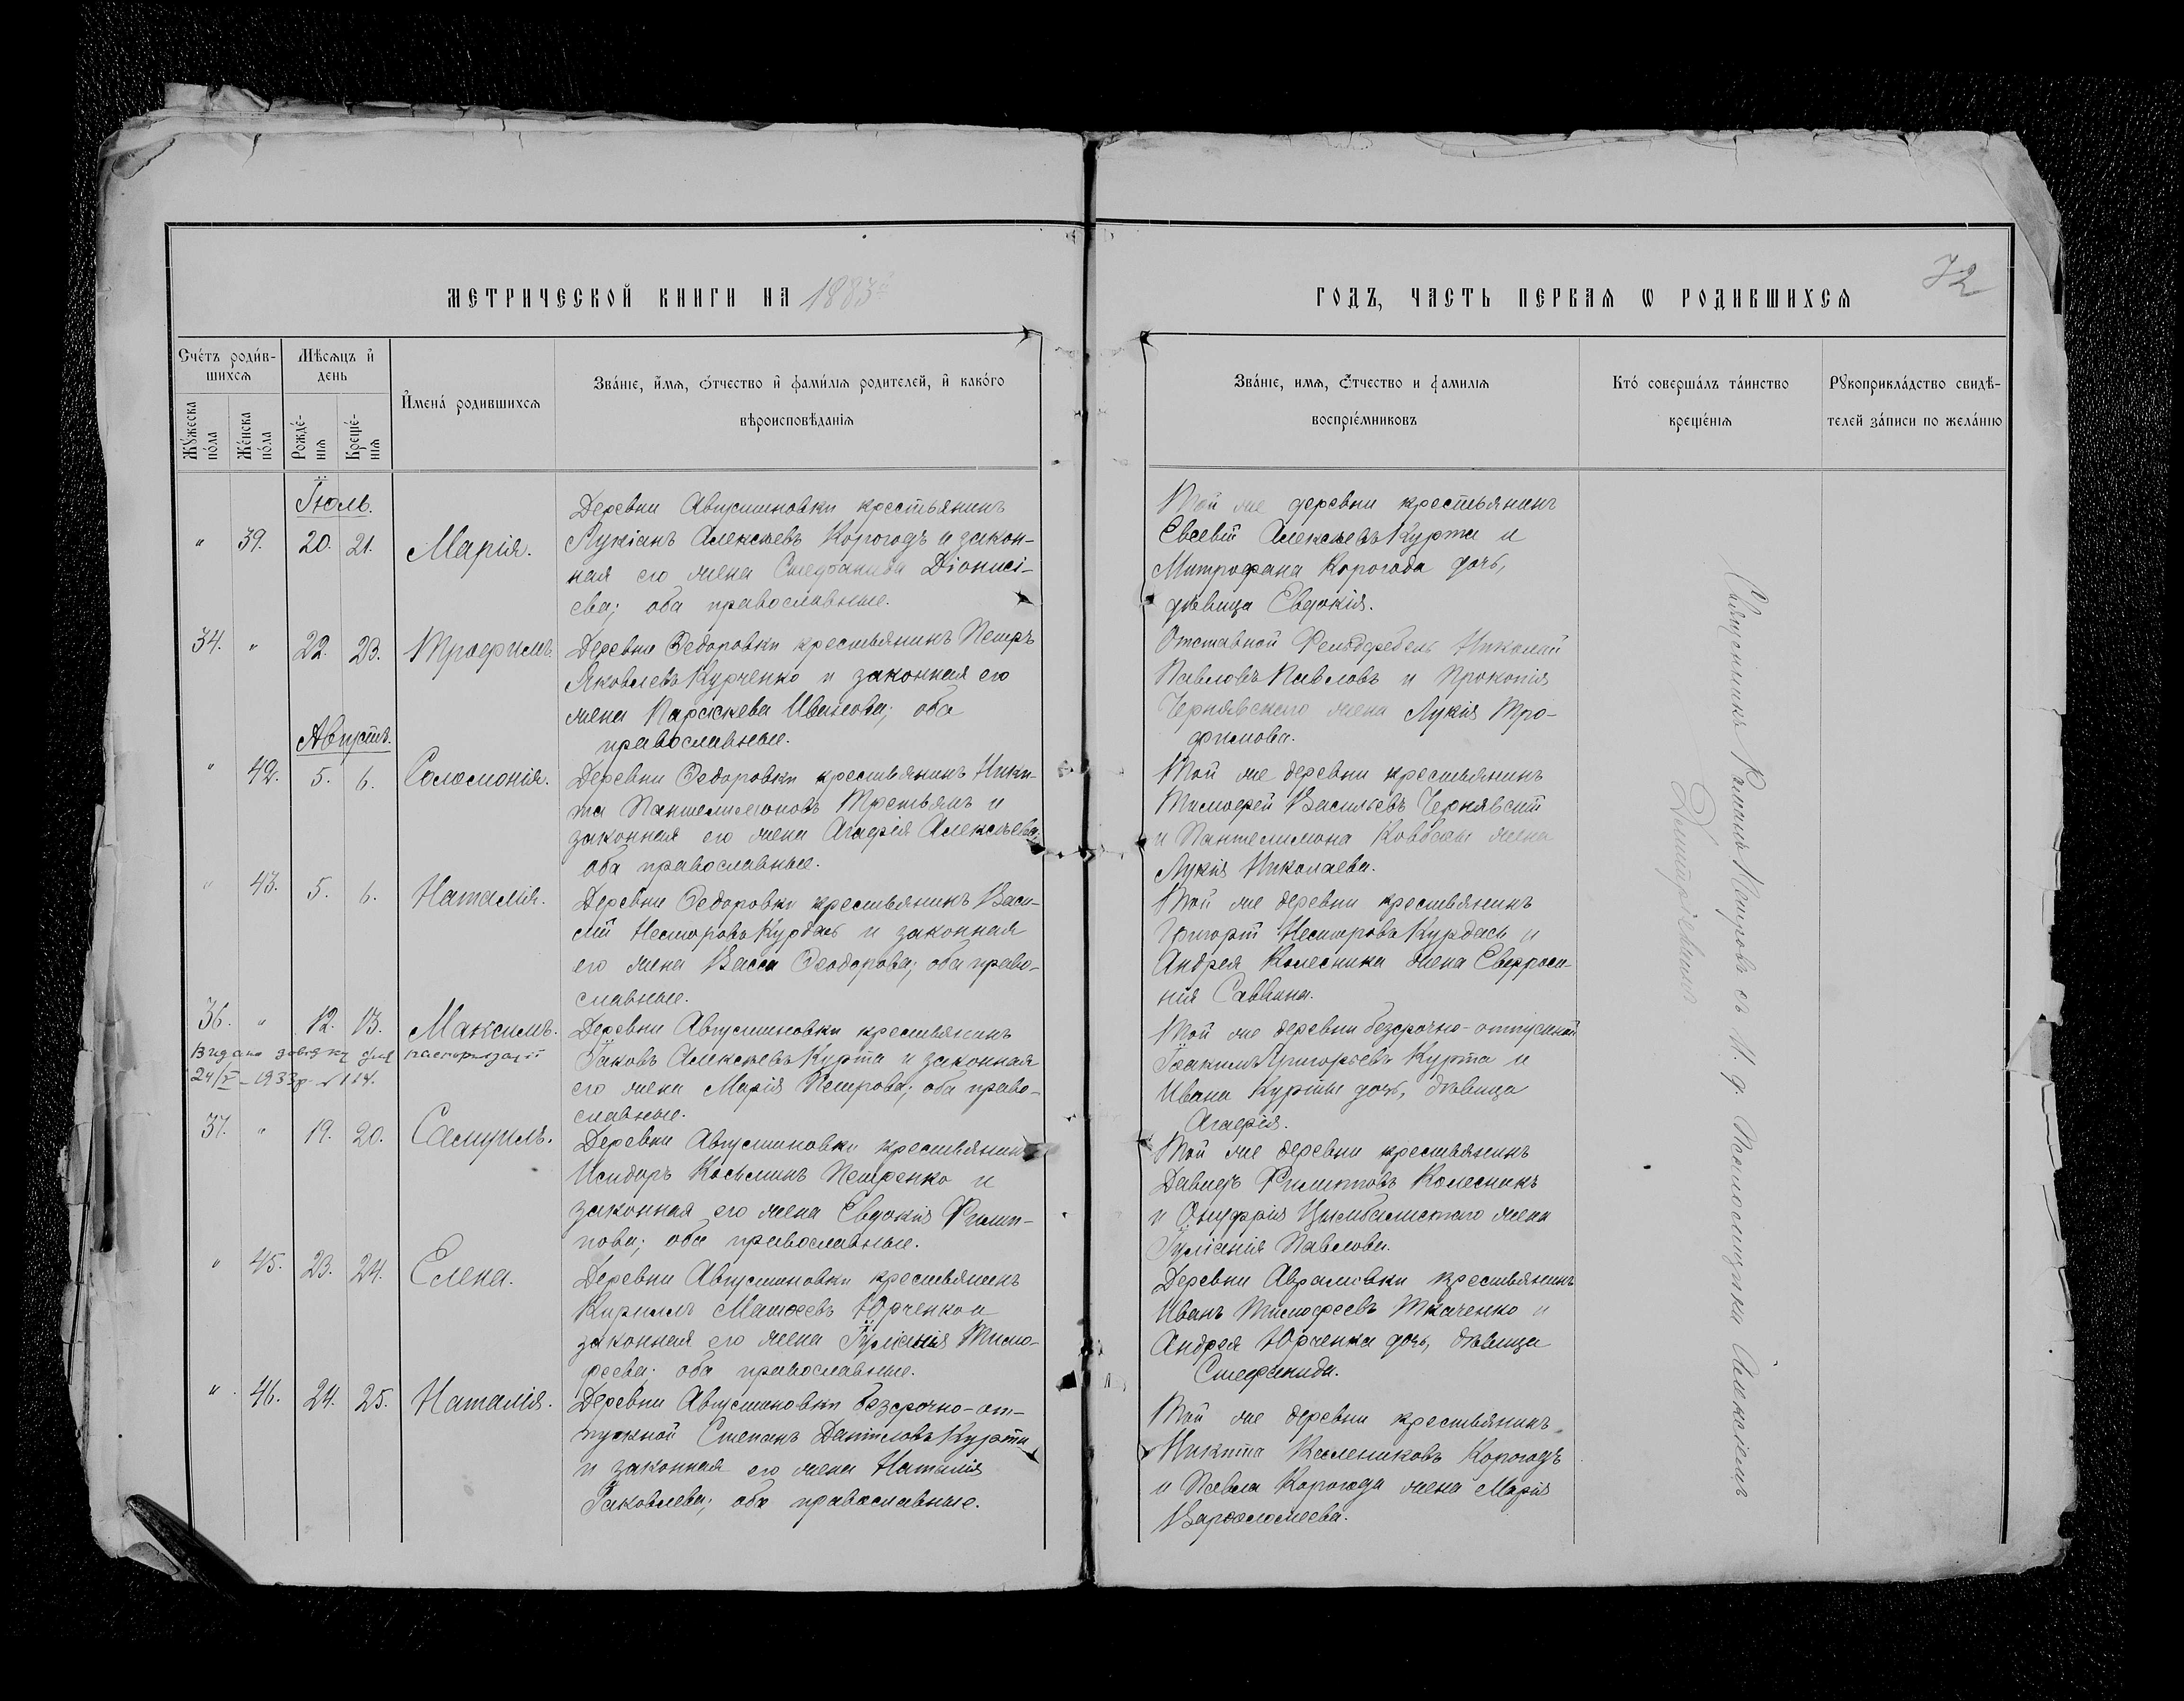 МЕТРИЧЕСКОЙ КНИГИ НА 1883й
ГОДЪ, ЧАСТЬ ПЕРВАЯ Ѡ РОДИВШИХСЯ
72
Счетъ родив-
шихся
Мѣсяцъ и
день
Имена родившихся
Званіе, имя, отчество и фамилія родителей, и какого
вѣроисповѣданія
Мужеска
пола
Женска
пола
Рожде-
нія
Креще-
нія
Званіе, имя, отчество и фамилія
воспріемниковъ
Кто совершалъ таинство
крещенія
Рукоприкладство свидѣ-
телей записи по желанію
Іюль.
" 39. 20. 21. Марія.
Деревни Августиновки крестьянинъ
Лукіанъ Алексѣевъ Корогодъ и закон-
ная его жена Стефанида Діонисі-
ева; оба православные.
Той же деревни крестьянинъ
Евсевій Алексѣевъ Курта и
Митрофана Корогода дочь,
дѣвица Евдокія.
34. " 22. 23. Трофимъ.
Деревни Ѳедоровки крестьянинъ Петръ
Яковлевъ Курченко и законная его
жена Параскева Иванова; оба
православные.
Отставной Фельдфебель Николай
Павловъ Павловъ и Прокопія
Чернявского жена Лукія Тро-
фимова.
Августъ.
" 42. 5. 6. Соломонія.
Деревни Ѳедоровки крестьянинъ Ники-
та Пантелимоновъ Третьякъ и
законная его жена Агафія Алексѣева;
оба православные.
Той же деревни крестьянинъ
Тимофей Васильевъ Чернявскій
и Пантелимона жена
Лукія Николаева.
" 43. 5. 6. Наталія.
Деревни Ѳедоровки крестьянинъ Васи-
лій Несторовъ Курдасъ и законная
его жена Васса Ѳеодорова; оба право-
славные.
Той же деревни крестьянинъ
Григорій Несторовъ Курдасъ и
Андрея Колесника жена Евфроси-
нія Саввина.
36. " 12. 13. Максимъ.
Видано довідку для
24/V - 1933р. №114.
Деревни Августиновки крестьянинъ
Іаковъ Алексѣевъ Курта и законная
его жена Марія Петрова; оба право-
славные.
Той же деревни безсрочно-отпускной
Іоакимъ Григорьевъ Курта и
Ивана Курты дочь, дѣвица
Агафія.
37. " 19. 20. Самуилъ.
Деревни Августиновки крестьянинъ
Исидоръ Косьминъ Петренко и
законная его жена Евдокія Филип-
пова; оба православные.
Той же деревни крестьянинъ
Давидъ Филипповъ Колесникъ
и Онуфрія Цымбалистаго жена
Іуліанія Павлова.
" 45. 23. 24. Елена.
Деревни Августиновки крестьянинъ
Кириллъ Матѳеевъ Юрченко и
законная его жена Іуліанія Тимо-
феева; оба православные.
Деревни Аврамовки крестьянинъ
Иванъ Тимофеевъ Ткаченко и
Андрея Юрченка дочь, дѣвица
Стефанида.
" 46. 24. 25. Наталія.
Деревни Августиновки безсрочно-от-
пускной Степанъ Даніиловъ Курта
и законная его жена Наталія
Іаковлева; оба православные.
Той же деревни крестьянинъ
Никита Калениковъ Корогодъ
и Павла Корогода жена Марія
Варѳоломеева.
Священникъ Романъ Петровъ съ И. д. Псаломщика Алексіемъ